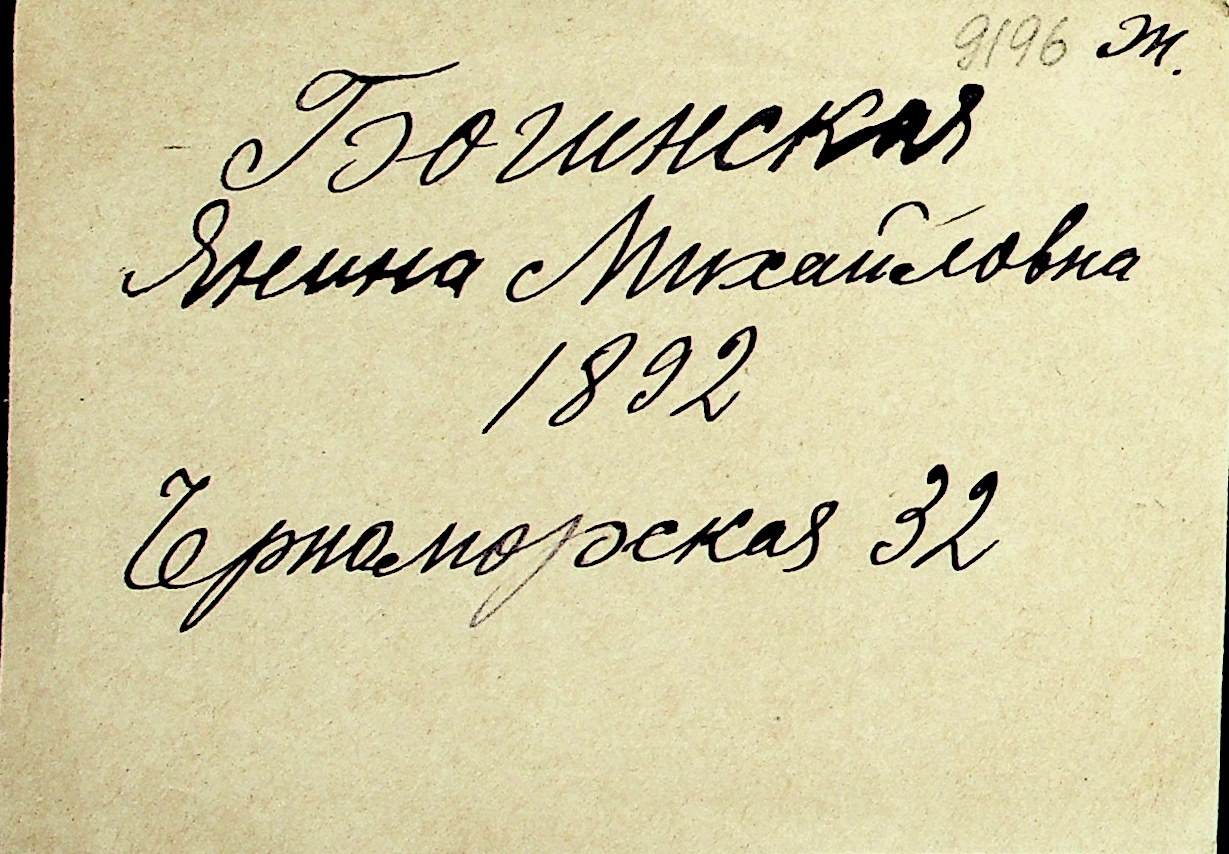 9196 Ж.
Богинская
Янина Михайловна
1892
Черноморская 32